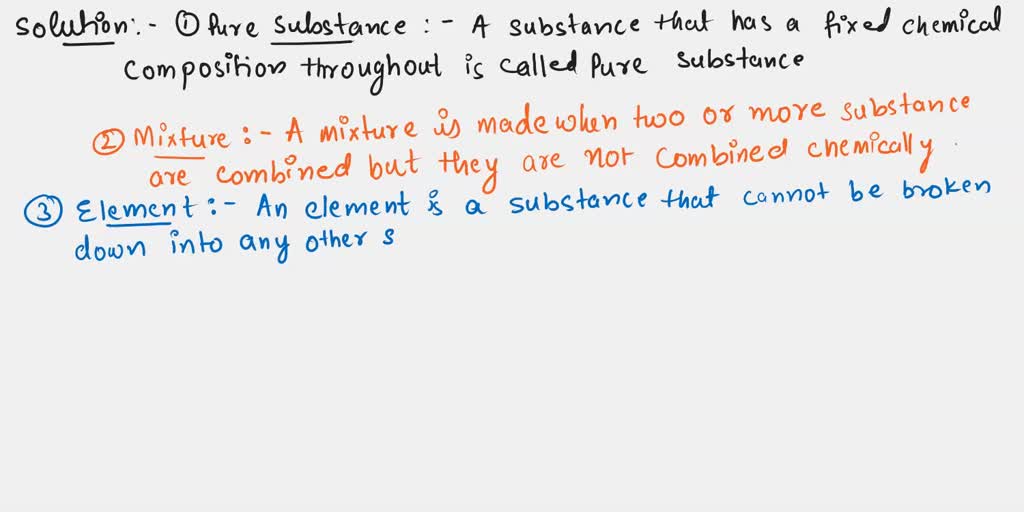 Solution:- ① Pure Substance :- A substance that has a fixed chemical
Composition throughout is called Pure substance
② Mixture :- A mixture is made when two or more substance
are combined but they are not combined chemically.
③ Element :- An element is a substance that cannot be broken
down into any other s